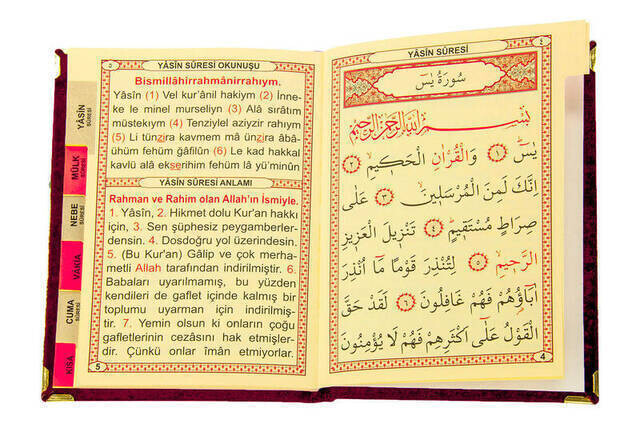 YÂSÎN SÛRESİ
MÜLK SÛRESİ
NEBE SÛRESİ
VÂKIA
CUMA SÛRESİ
KISA
٥
YÂSÎN SÛRESİ OKUNUŞU
Bismillâhirrahmânirrahıym.
Yâsîn (1) Vel kur'ânil hakiym (2) İnne-
ke le minel murseliyn (3) Alâ sırâtım
müstekıym (4) Tenziylel aziyzir rahıym
(5) Li tünzira kavmem mâ ünzira âbâ-
ühüm fehüm ğâfilûn (6) Le kad hakkal
kavlü alâ ekserihim fehüm lâ yü'minûn
YÂSÎN SÛRESİ ANLAMI
Rahman ve Rahim olan Allah'ın İsmiyle.
1. Yâsîn, 2. Hikmet dolu Kur'an hakkı
için, 3. Sen şüphesiz peygamberler-
densin. 4. Dosdoğru yol üzerindesin.
5. (Bu Kur'an) Gâlip ve çok merha-
metli Allah tarafından indirilmiştir. 6.
Babaları uyarılmamış, bu yüzden
kendileri de gaflet içinde kalmış bir
toplumu uyarman için indirilmiş-
tir. 7. Yemin olsun ki onların çoğu
gafletlerinin cezasını hak etmişler-
dir. Çünkü onlar îmân etmiyorlar.
5
YÂSÎN SÛRESİ
٤
سُورَةُ يٰسٓ
بِسْمِ اللّٰهِ الرَّحْمٰنِ الرَّحِيمِ
يٰسٓ ﴿١﴾ وَالْقُرْاٰنِ الْحَكِيمِ ﴿٢﴾
اِنَّكَ لَمِنَ الْمُرْسَلِينَ ﴿٣﴾ عَلٰى
صِرَاطٍ مُسْتَقِيمٍ ﴿٤﴾ تَنْزِيلَ الْعَزِيزِ
الرَّحِيمِ ﴿٥﴾ لِتُنْذِرَ قَوْمًا مَٓا اُنْذِرَ
اٰبَٓاؤُهُمْ فَهُمْ غَافِلُونَ ﴿٦﴾ لَقَدْ حَقَّ
الْقَوْلُ عَلٰٓى اَكْثَرِهِمْ فَهُمْ لَا يُؤْمِنُونَ
4